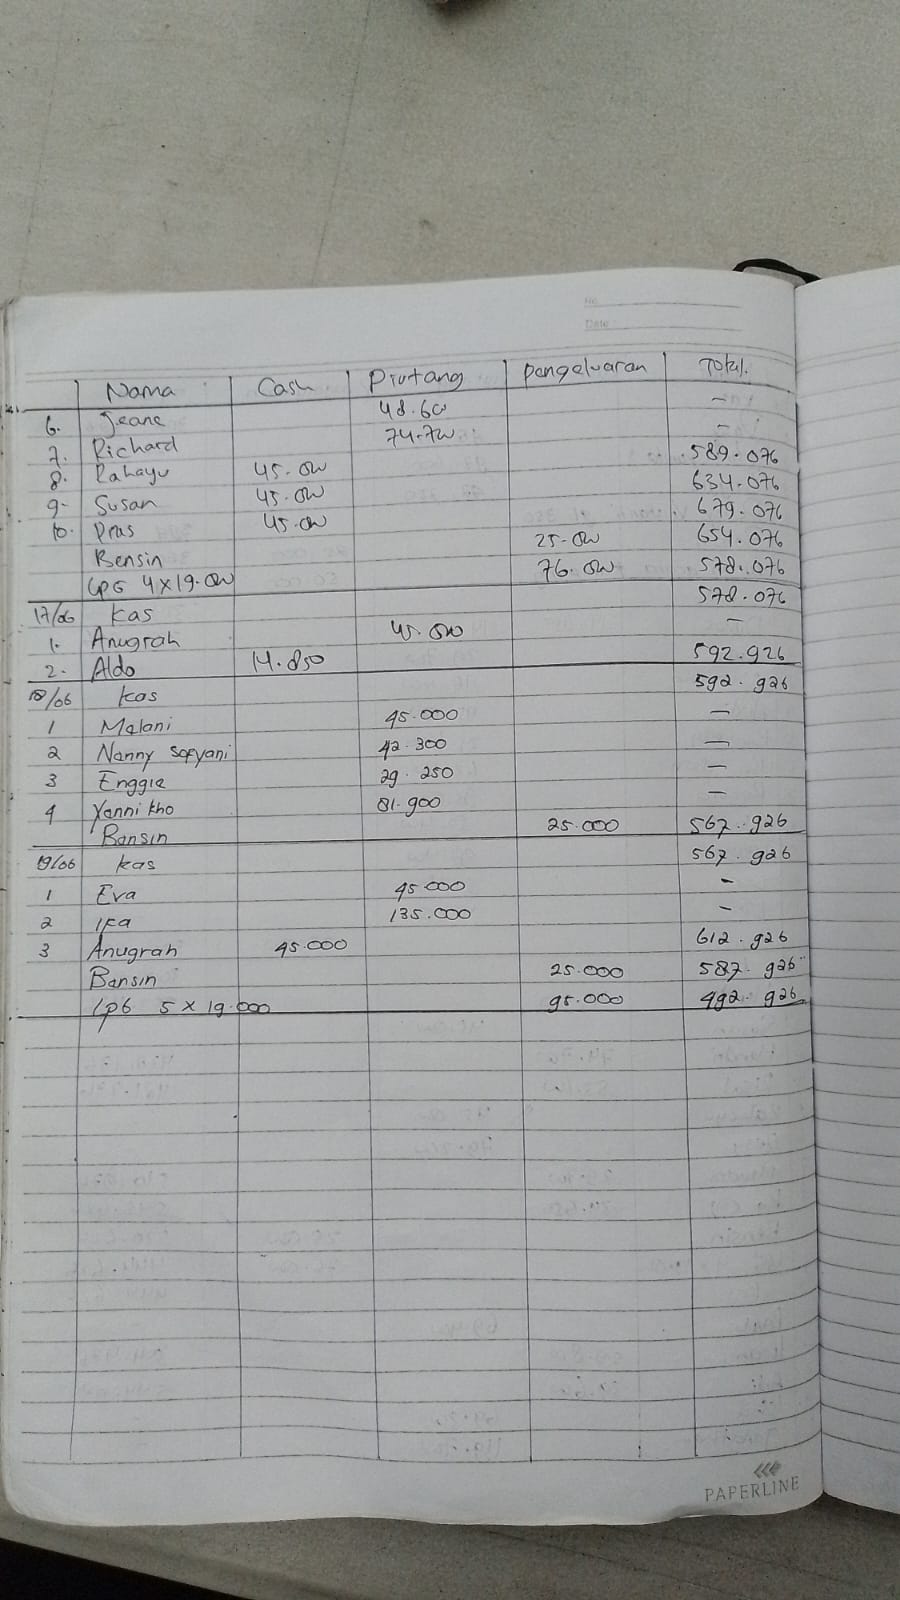 No
Date
Nama Cash Piutang Pengeluaran Total.
6. Jeane 48.600 –
7. Richard 74.700 –
8. Rahayu 45.000 589.076
9. Susan 45.000 634.076
10. Pras 45.000 679.076
Bensin 25.000 654.076
LPG 4x19.000 76.000 578.076
17/06 Kas 578.076
1. Anugrah 45.000 –
2. Aldo 14.850 592.926
18/06 Kas 592.926
1 Melani 45.000 –
2 Nanny Sofyani 42.300 –
3 Enggie 29.250 –
4 Yanni kho 81.900 –
Bensin 25.000 567.926
19/06 kas 567.926
1 Eva 45.000 –
2 Ika 135.000 –
3 Anugrah 45.000 612.926
Bensin 25.000 587.926
LPG 5 x 19.000 95.000 492.926
PAPERLINE